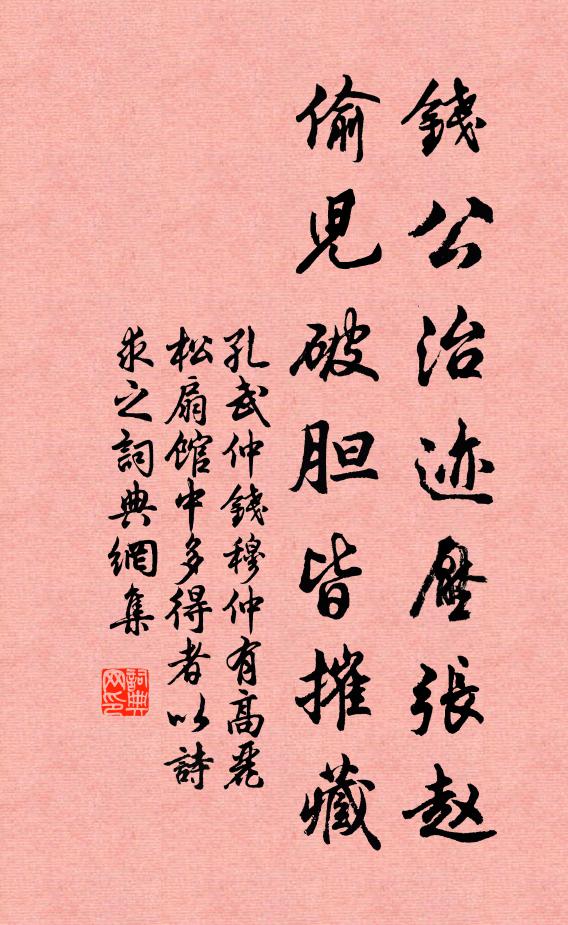 錢公治迹壓張赵
偷児破胆皆摧藏
孔武仲錢穆仲有高麗
松扇馆中多得者以詩
求之詞典網集
詞典
网印